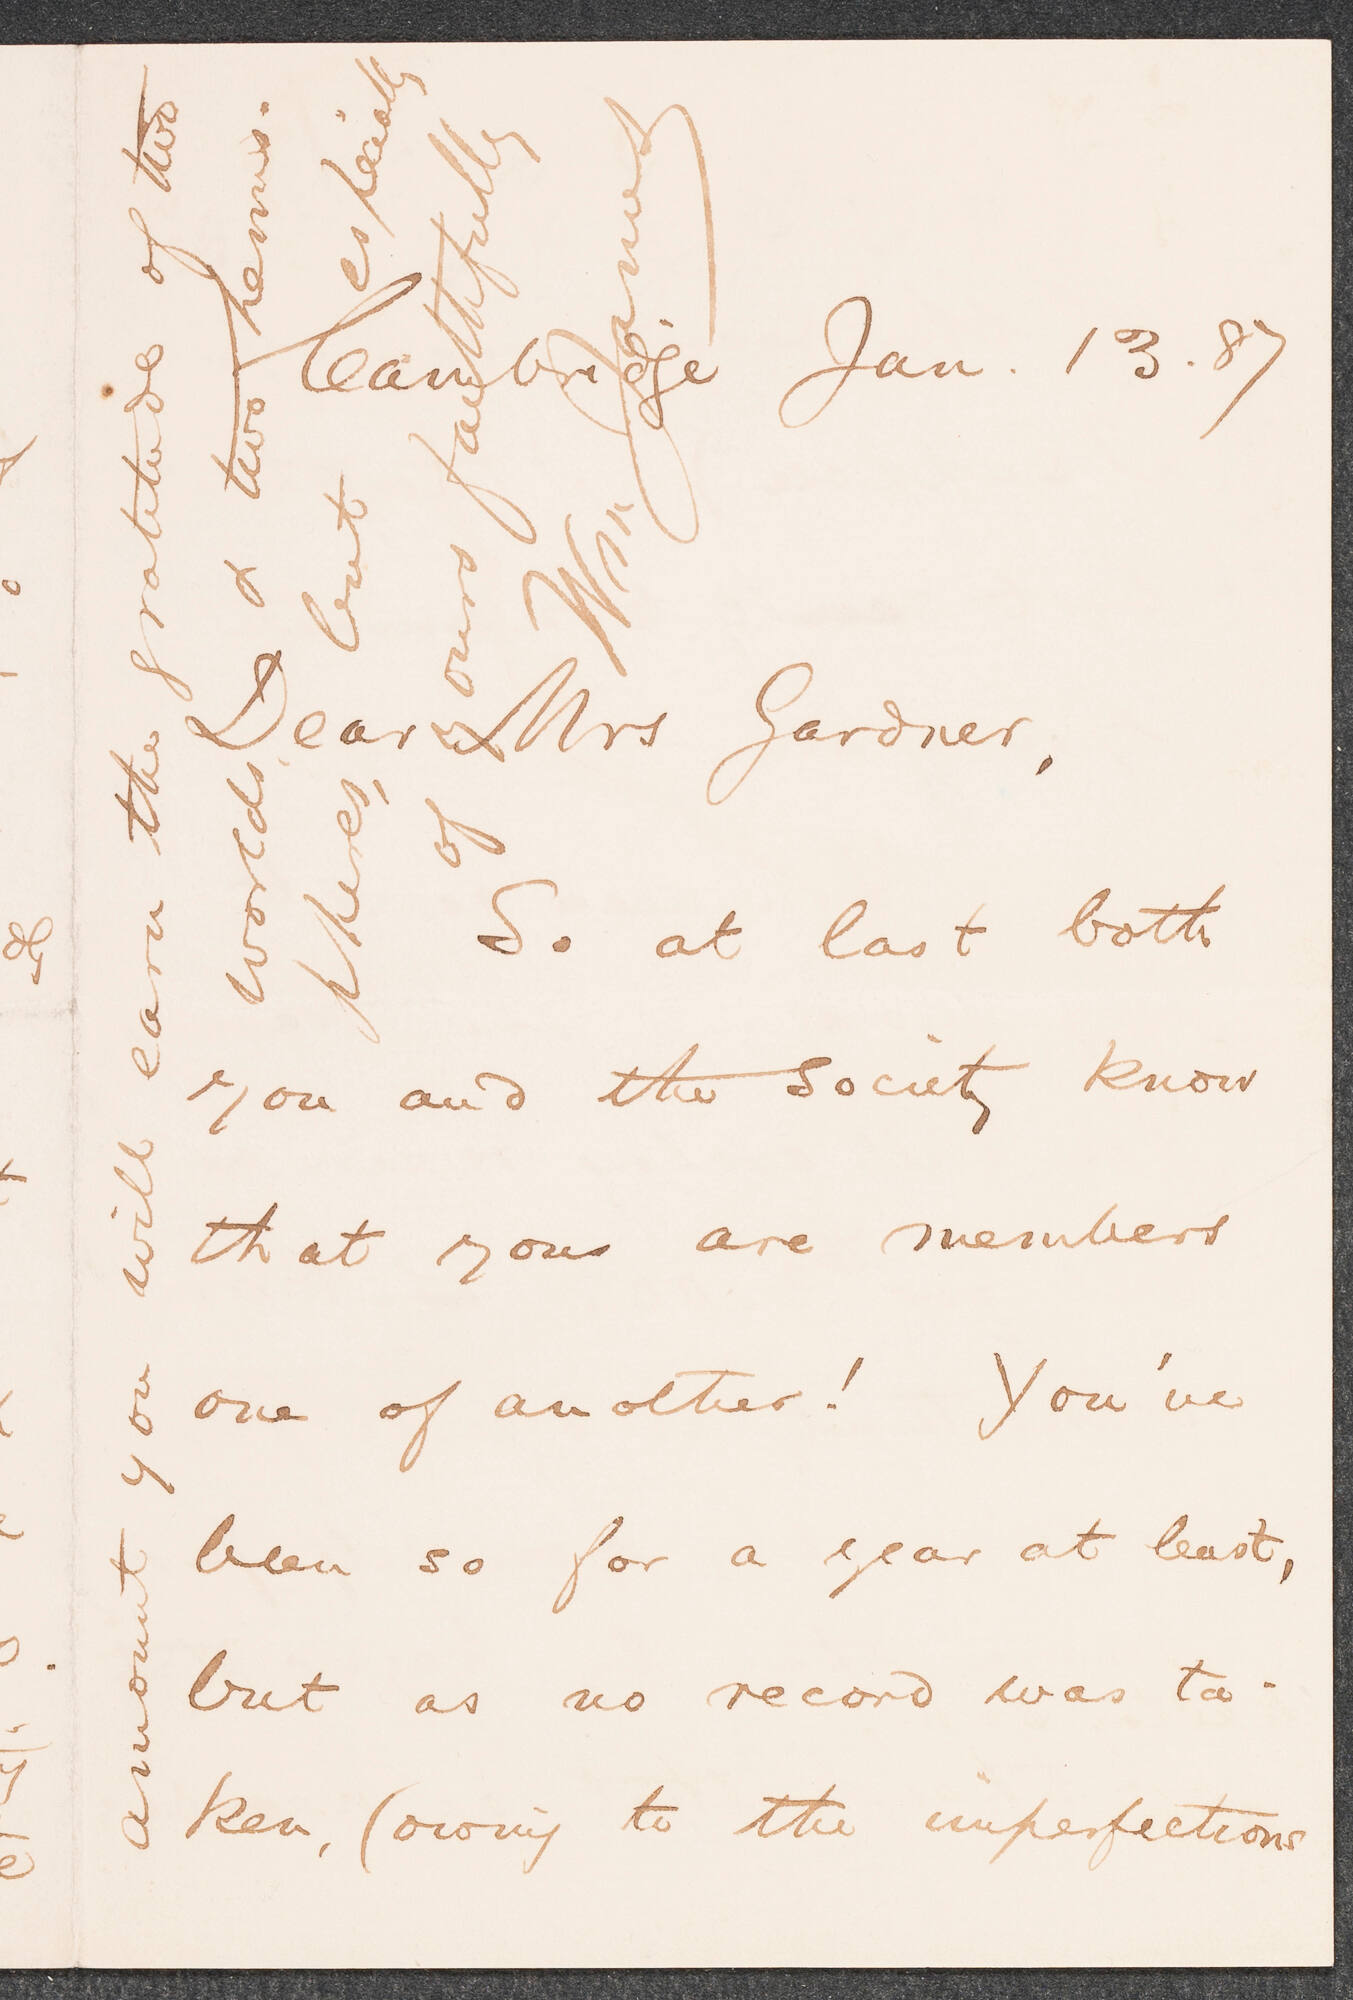 Cambridge Jan. 13. 87
Dear Mrs Gardner,
So at last both
you and the Society know
that you are members
one of another! You've
been so for a year at least,
but as no record was ta-
ken, (owing to the imperfections
amount you will earn the gratitude of two
worlds & two hemis.
pheres, but especially
of yours faithfully
Wm James